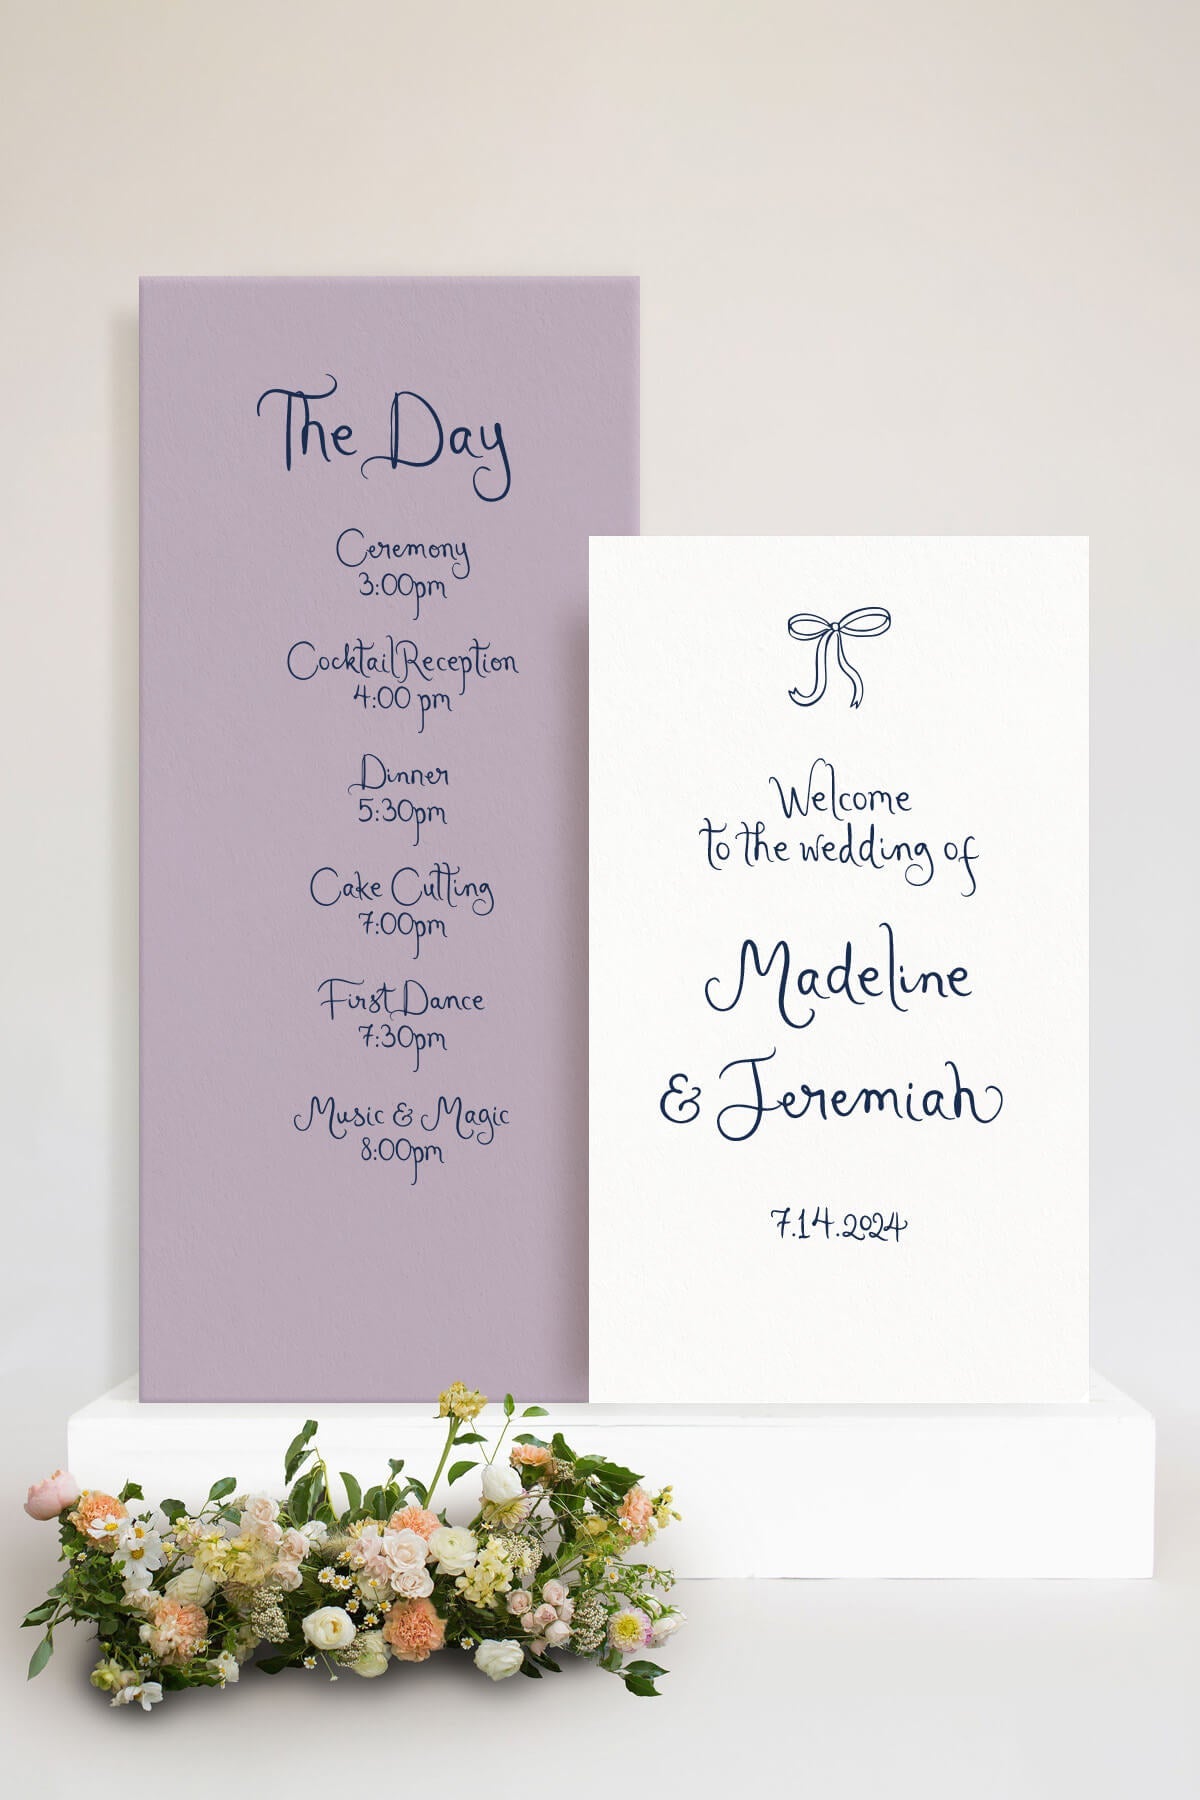 The Day
Ceremony
3:00pm
Cocktail Reception
4:00 pm
Dinner
5:30pm
Cake Cutting
7:00pm
First Dance
7:30pm
Music & Magic
8:00pm
Welcome
to the wedding of
Madeline
& Jeremiah
7.14.2024